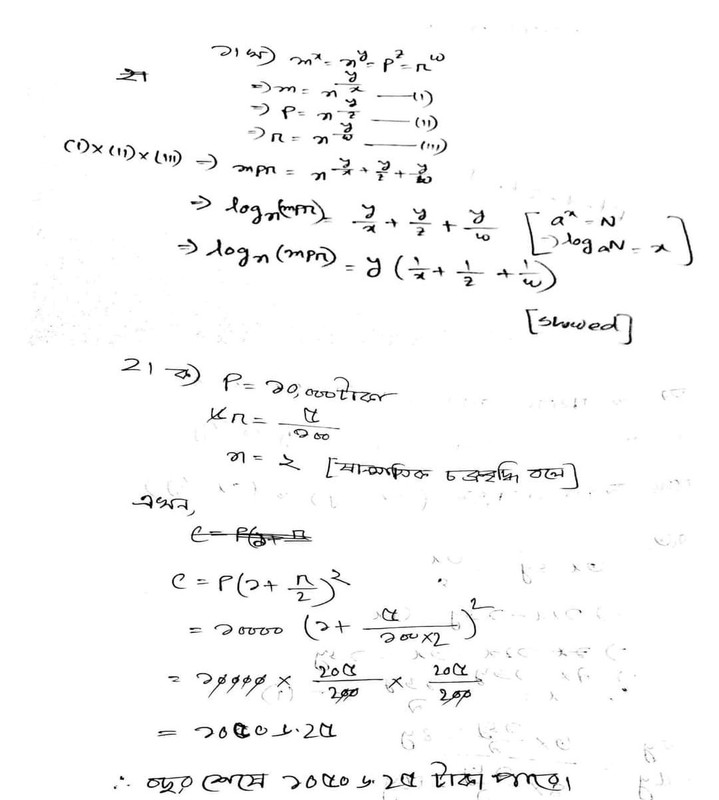 ১। খ) m^x = n^y = p^z = r^w
⇒ m = n^(y/x) —(i)
⇒ p = n^(y/z) —(ii)
⇒ r = n^(y/w) —(iii)
(i)×(ii)×(iii) ⇒ mpr = n^(y/x + y/z + y/w)
⇒ logn(mpr) = y/x + y/z + y/w [a^x = N ⇒ logaN = x]
⇒ logn(mpr) = y (1/x + 1/z + 1/w)
[showed]
2। ক) P = ১০,০০০ টাকা
r = ৫/১০০
n = ২ [ষান্মাসিক চক্রবৃদ্ধি বলে]
এখন,
C = P(১ + r/2)^2
= ১০০০০ (১ + ৫/১০০×2)^2
= ১০০০০ × 20৫/200 × 20৫/200
= ১০৫০৬.2৫
∴ বছর শেষে ১০৫০৬.2৫ টাকা পাবে।